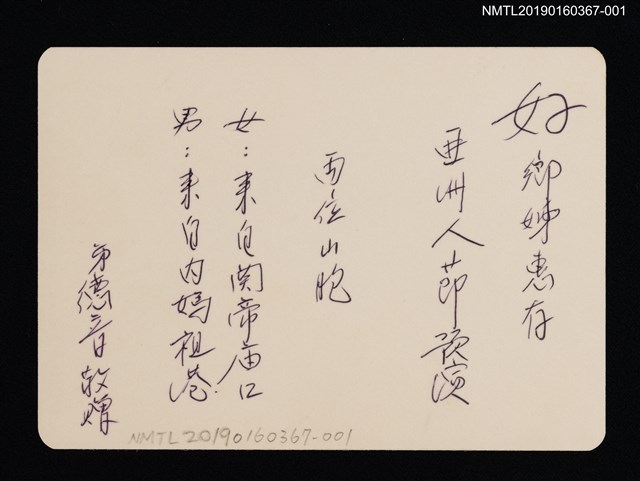 NMTL20190160367-001
好鄉姊惠存
亜洲人節預演
両位山胞
女：来自関帝庙口
男：来自内媽祖港.
弟德音敬贈
NMTL20190160367-001